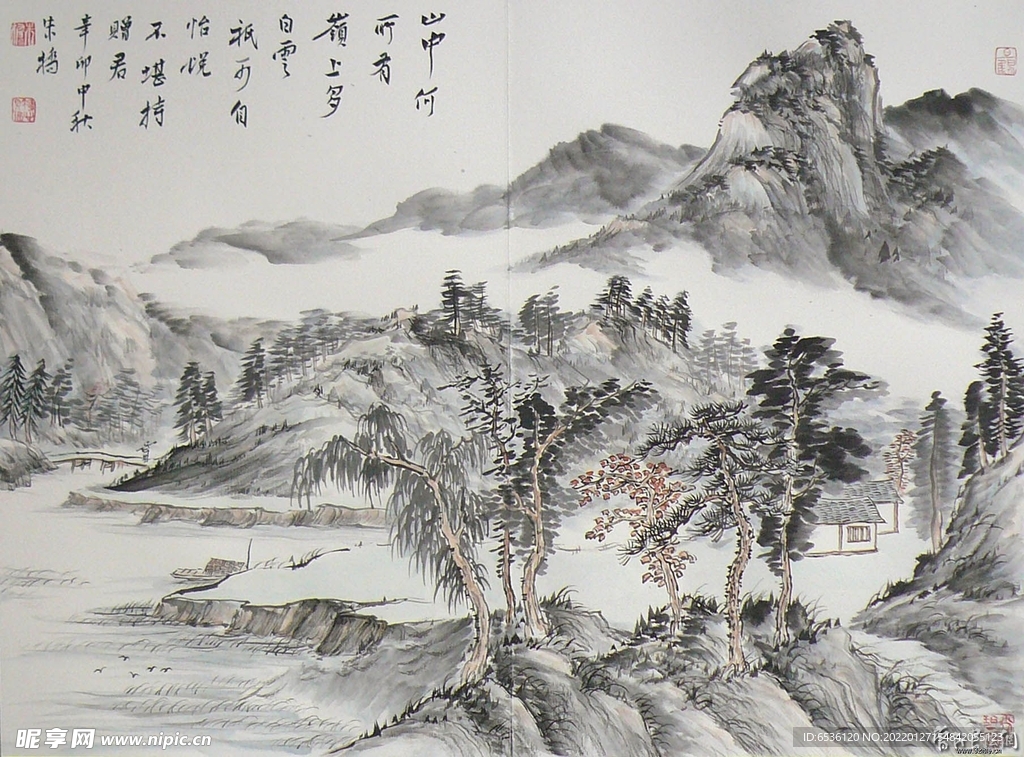 山中何
所有
嶺上多
白雲
祇可自
怡悦
不堪持
贈君
辛卯中秋
朱鸻
昵享网 www.nipic.cn
ID:6536120 NO:20220127154842055123